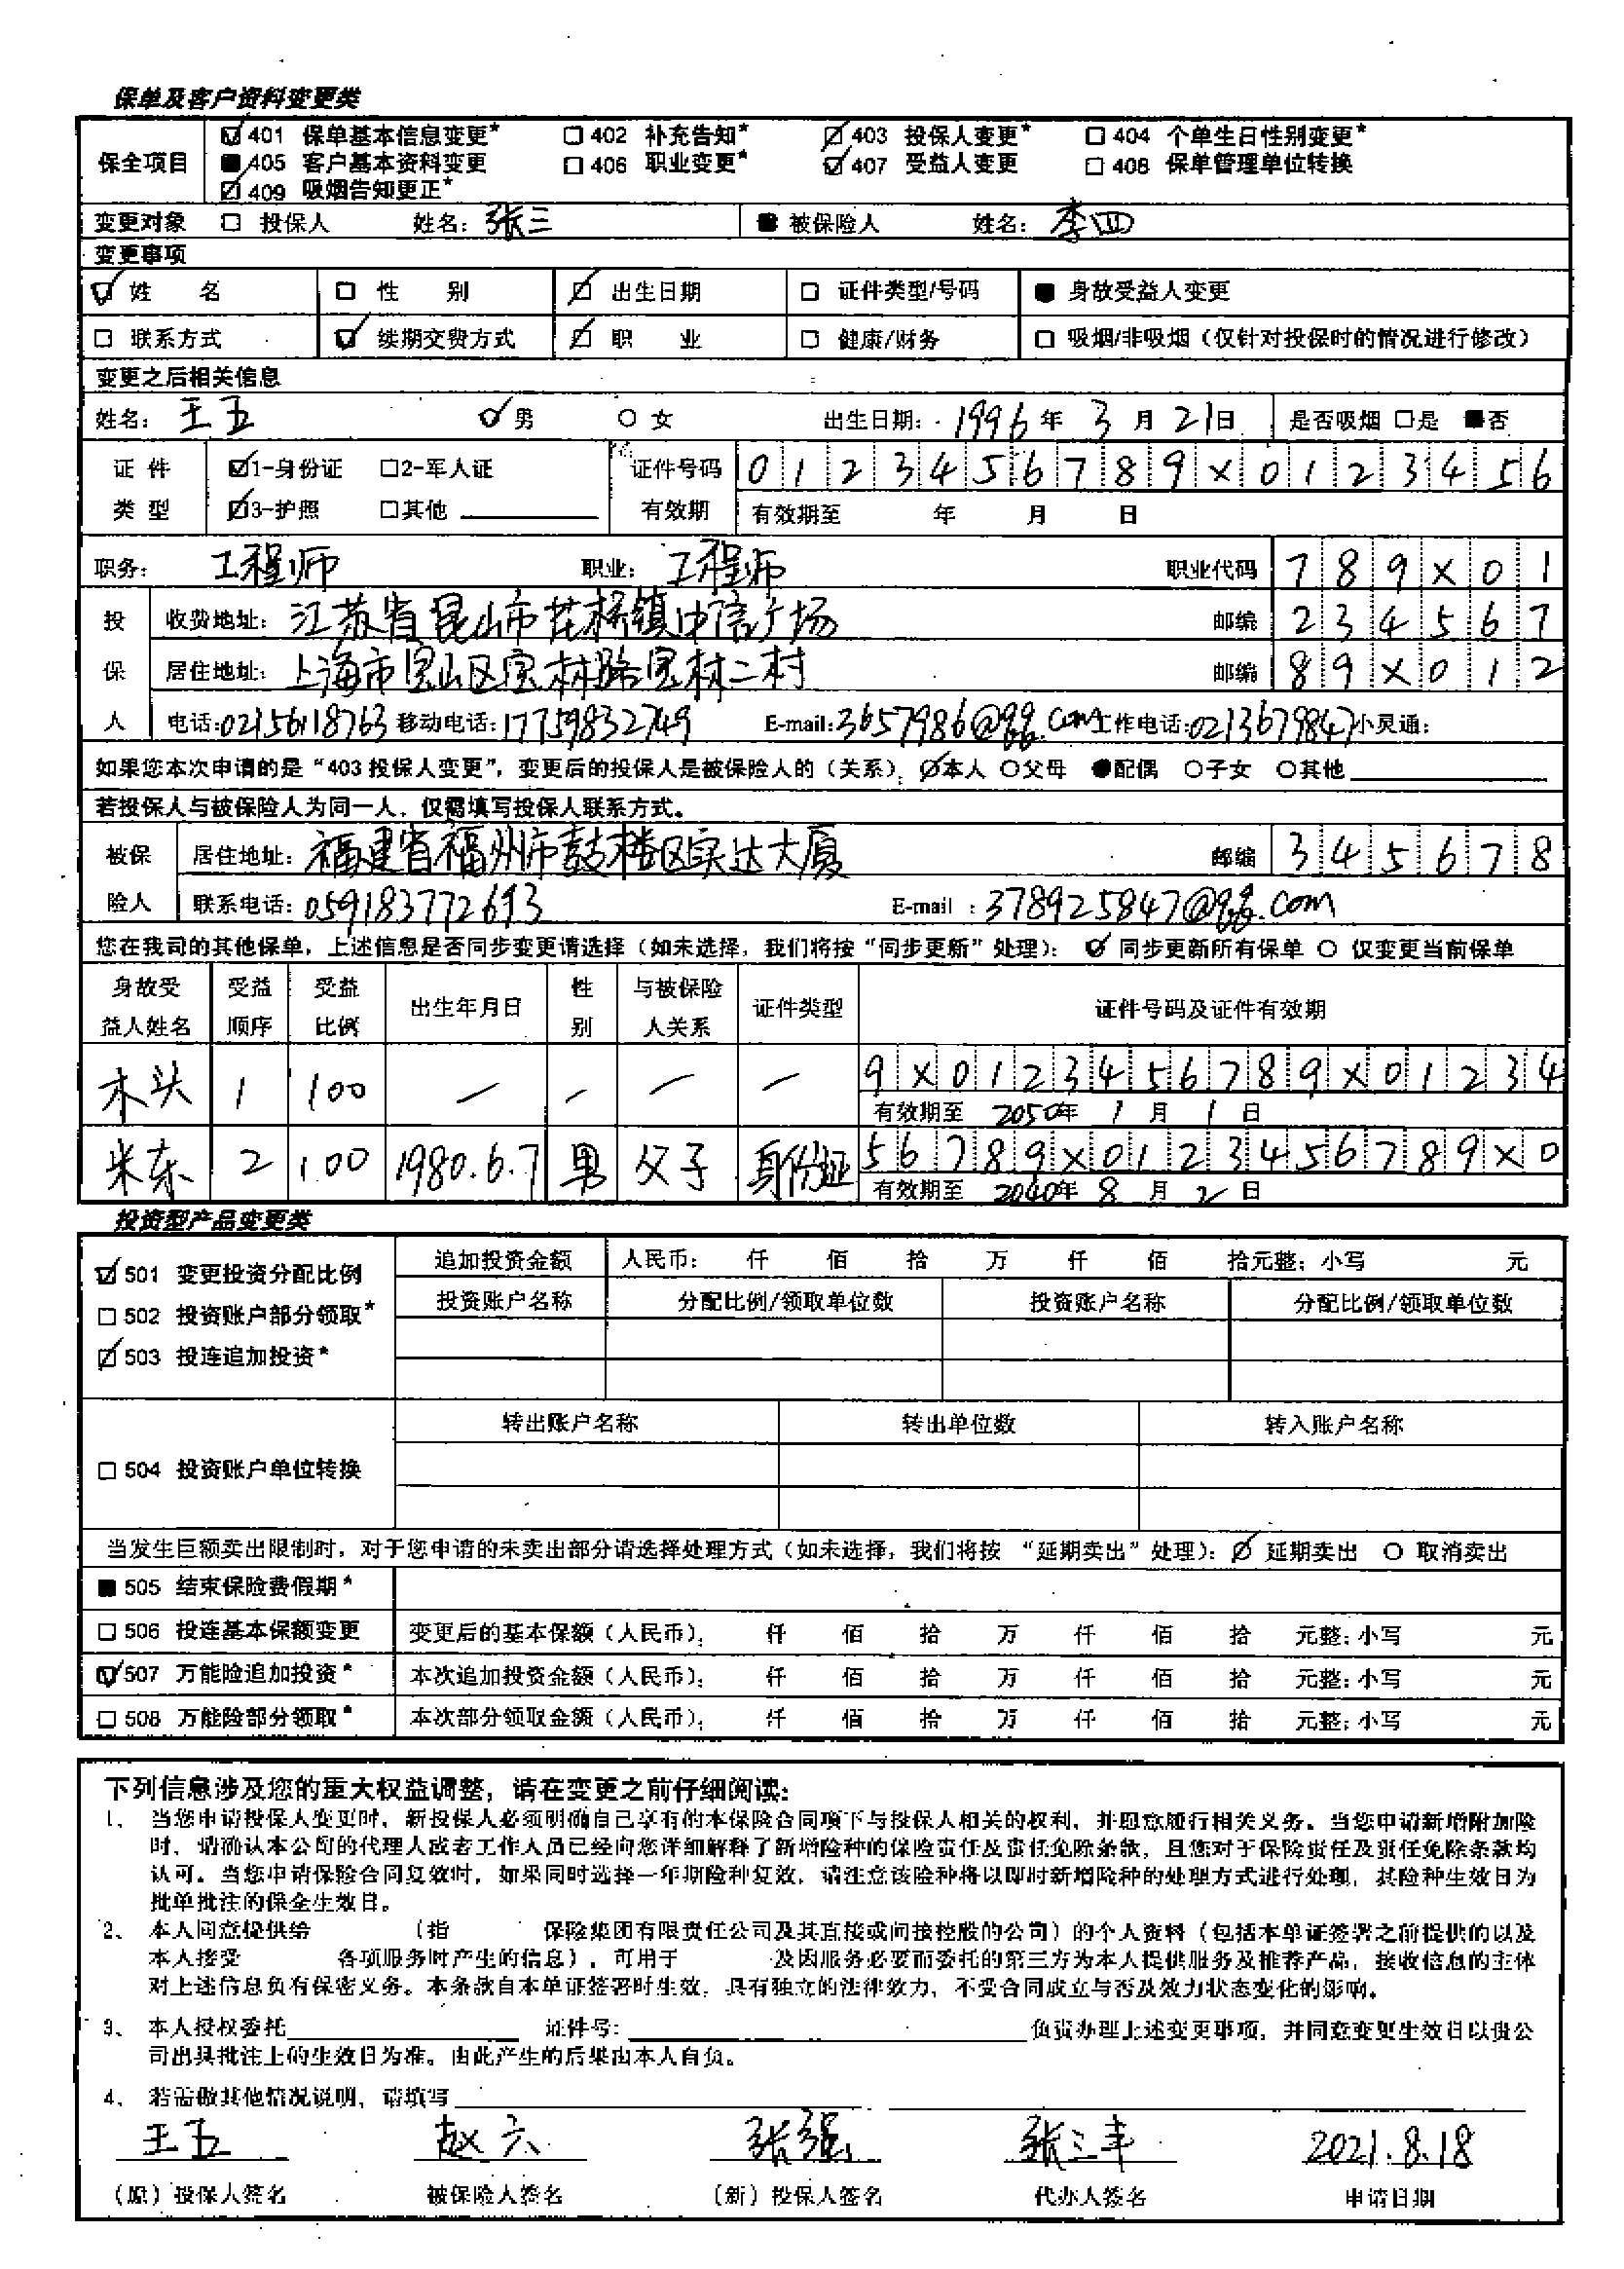 保单及客户资料变更类
保全项目
☑ 401 保单基本信息变更* □ 402 补充告知* ☑ 403 投保人变更* □ 404 个单生日性别变更*
■ 405 客户基本资料变更 □ 406 职业变更* ☑ 407 受益人变更 □ 408 保单管理单位转换
☑ 409 吸烟告知更正*
变更对象 □ 投保人 姓名：张三 ■ 被保险人 姓名：李四
变更事项
☑ 姓 名 □ 性 别 ☑ 出生日期 □ 证件类型/号码 ■ 身故受益人变更
□ 联系方式 ☑ 续期交费方式 ☑ 职 业 □ 健康/财务 □ 吸烟/非吸烟（仅针对投保时的情况进行修改）
变更之后相关信息
姓名：王五 ☑ 男 ○ 女 出生日期：1996年3月21日 是否吸烟 □是 ■否
证件类型 ☑1-身份证 □2-军人证 证件号码 0123456789X0123456
☑3-护照 □其他 有效期 有效期至 年 月 日
职务：工程师 职业：工程师 职业代码 789X01
投保人 收费地址：江苏省昆山市花桥镇中信广场 邮编 234567
居住地址：上海市宝山区宝林路宝林二村 邮编 89X012
电话：02156118763 移动电话：17759832749 E-mail：3657986@qq.com 工作电话：0213679847 小灵通：
如果您本次申请的是“403 投保人变更”，变更后的投保人是被保险人的（关系）：☑本人 ○父母 ●配偶 ○子女 ○其他
若投保人与被保险人为同一人，仅需填写投保人联系方式。
被保险人 居住地址：福建省福州市鼓楼区实达大厦 邮编 345678
联系电话：059183772693 E-mail：378925847@qq.com
您在我司的其他保单，上述信息是否同步变更请选择（如未选择，我们将按“同步更新”处理）：☑ 同步更新所有保单 ○ 仅变更当前保单
身故受益人姓名 受益顺序 受益比例 出生年月日 性别 与被保险人关系 证件类型 证件号码及证件有效期
木头 1 100 — — — — 9X0123456789X01234
有效期至 2050年1月1日
米东 2 100 1980.6.7 男 父子 身份证 56789X0123456789X0
有效期至 2040年8月2日
投资型产品变更类
☑ 501 变更投资分配比例 追加投资金额 人民币： 仟 佰 拾 万 仟 佰 拾元整；小写 元
□ 502 投资账户部分领取* 投资账户名称 分配比例/领取单位数 投资账户名称 分配比例/领取单位数
☑ 503 投连追加投资*
转出账户名称 转出单位数 转入账户名称
□ 504 投资账户单位转换
当发生巨额卖出限制时，对于您申请的未卖出部分请选择处理方式（如未选择，我们将按 “延期卖出”处理）：☑ 延期卖出 ○ 取消卖出
■ 505 结束保险费假期*
□ 506 投连基本保额变更 变更后的基本保额（人民币）： 仟 佰 拾 万 仟 佰 拾 元整；小写 元
☑ 507 万能险追加投资* 本次追加投资金额（人民币）： 仟 佰 拾 万 仟 佰 拾 元整；小写 元
□ 508 万能险部分领取* 本次部分领取金额（人民币）： 仟 佰 拾 万 仟 佰 拾 元整；小写 元
下列信息涉及您的重大权益调整，请在变更之前仔细阅读：
1、 当您申请投保人变更时，新投保人必须明确自己享有的本保险合同项下与投保人相关的权利，并愿意履行相关义务。当您申请新增附加险
时，请确认本公司的代理人或者工作人员已经向您详细解释了新增险种的保险责任及责任免除条款，且您对于保险责任及责任免除条款均
认可。当您申请保险合同复效时，如果同时选择一年期险种复效，请注意该险种将以即时新增险种的处理方式进行处理，其险种生效日为
批单批注的保全生效日。
2、 本人同意提供给 （指 保险集团有限责任公司及其直接或间接控股的公司）的个人资料（包括本单证签署之前提供的以及
本人接受 各项服务时产生的信息），可用于 及因服务必要而委托的第三方为本人提供服务及推荐产品，接收信息的主体
对上述信息负有保密义务。本条款自本单证签署时生效，具有独立的法律效力，不受合同成立与否及效力状态变化的影响。
3、 本人授权委托 证件号： 负责办理上述变更事项，并同意变更生效日以贵公
司出具批注上的生效日为准。由此产生的后果由本人自负。
4、 若需做其他情况说明，请填写
王五 赵六 张强 张三丰 2021.8.18
（原）投保人签名 被保险人签名 （新）投保人签名 代办人签名 申请日期